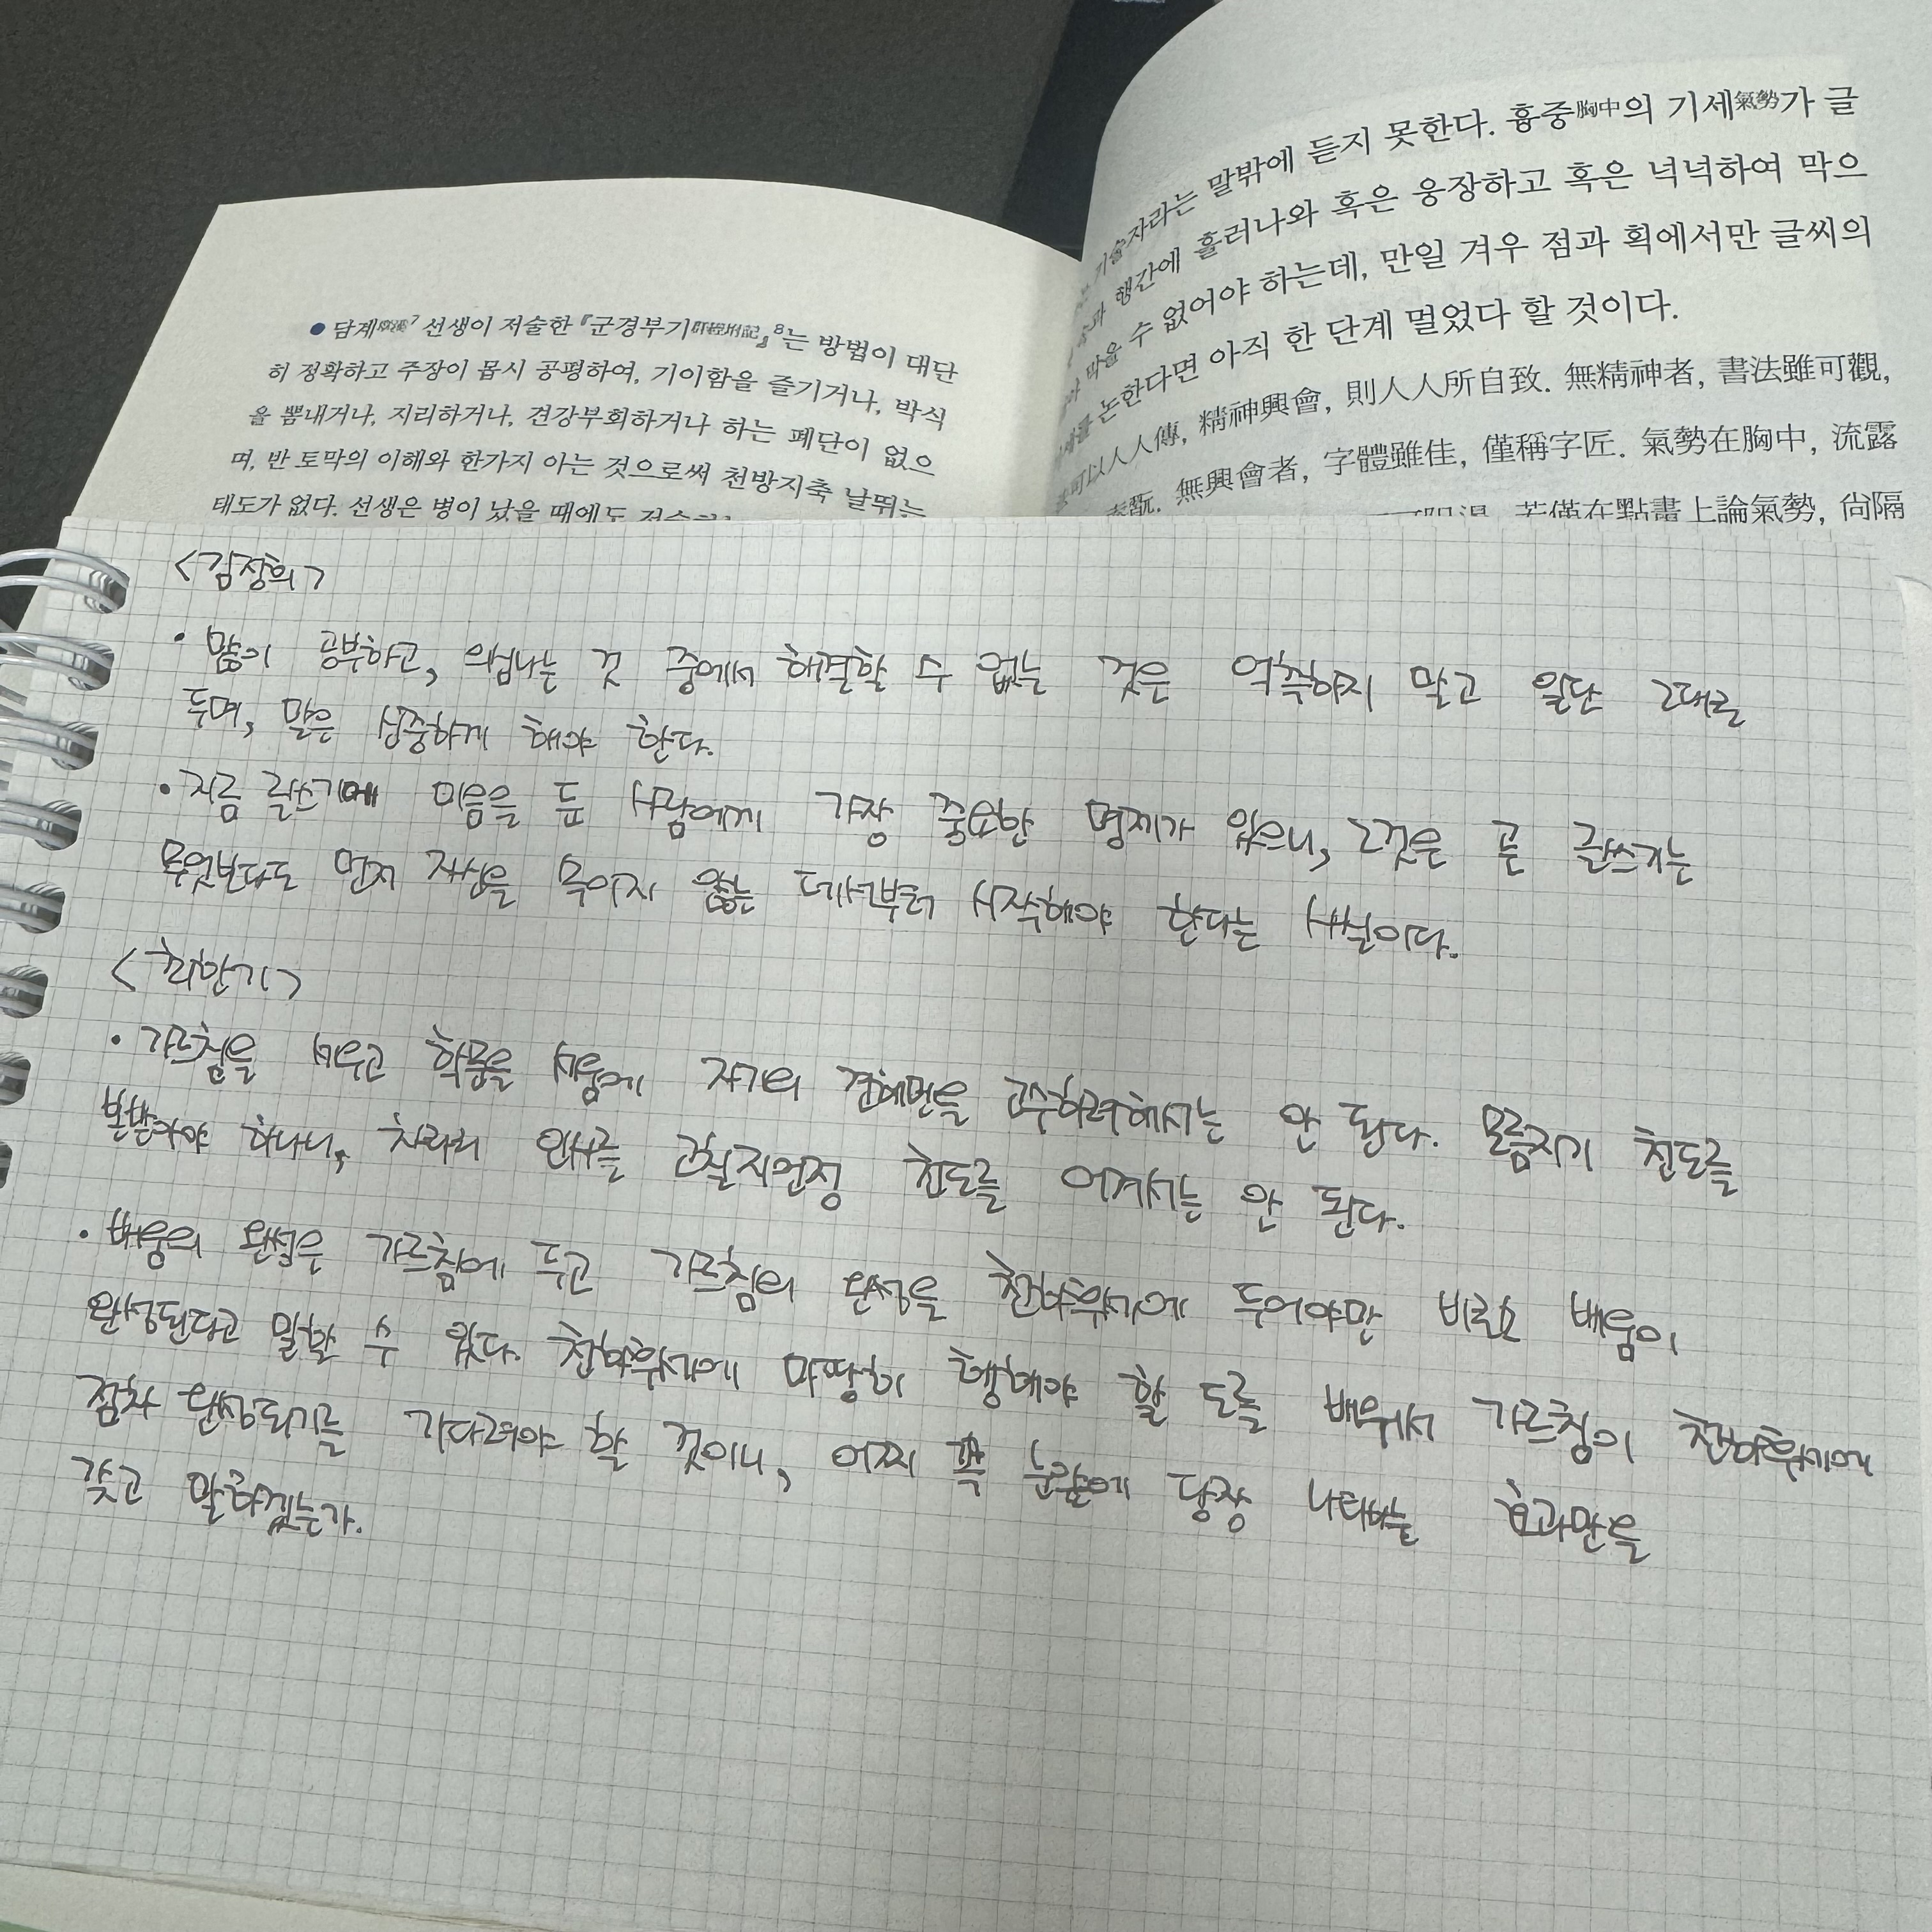 ● 담계 7 선생이 저술한 『군경부기群經附記』8는 방법이 대단
히 정확하고 주장이 몹시 공평하여, 기이함을 즐기거나, 박식
을 뽐내거나, 지리하거나, 견강부회하거나 하는 폐단이 없으
며, 반 토막의 이해와 한가지 아는 것으로써 천방지축 날뛰는
태도가 없다. 선생은 병이 났을 때에도
기술자라는 말밖에 듣지 못한다. 흉중胸中의 기세氣勢가 글
행간에 흘러나와 혹은 웅장하고 혹은 넉넉하여 막으
막을 수 없어야 하는데, 만일 겨우 점과 획에서만 글씨의
논한다면 아직 한 단계 멀었다 할 것이다.
可以人人傳, 精神興會, 則人人所自致. 無精神者, 書法雖可觀,
無興會者, 字體雖佳, 僅稱字匠. 氣勢在胸中, 流露
若僅在點畫上論氣勢, 尙隔
<김정희>
• 많이 공부하고, 의심나는 것 중에서 해결할 수 없는 것은 억측하지 말고 일단 그대로
두며, 말은 신중하게 해야 한다.
• 지금 글쓰기에 마음을 둔 사람에게 가장 중요한 명제가 있으니, 그것은 곧 글쓰기는
무엇보다도 먼저 자신을 속이지 않는 데서부터 시작해야 한다는 사실이다.
<최한기>
• 가르침을 세우고 학문을 세움에 자기의 견해만을 고수하려해서는 안 된다. 모름지기 천도를
본받아야 하나니, 차라리 인사를 고칠지언정 천도를 어겨서는 안 된다.
• 배움의 완성은 가르침에 두고 가르침의 완성을 천하후세에 두어야만 비로소 배움이
완성된다고 말할 수 있다. 천하후세에 마땅히 행해야 할 도를 배워서 가르침이 천하후세에
점차 완성되기를 기다려야 할 것이니, 어찌 눈앞에 당장 나타나는 효과만을
갖고 말하겠는가.